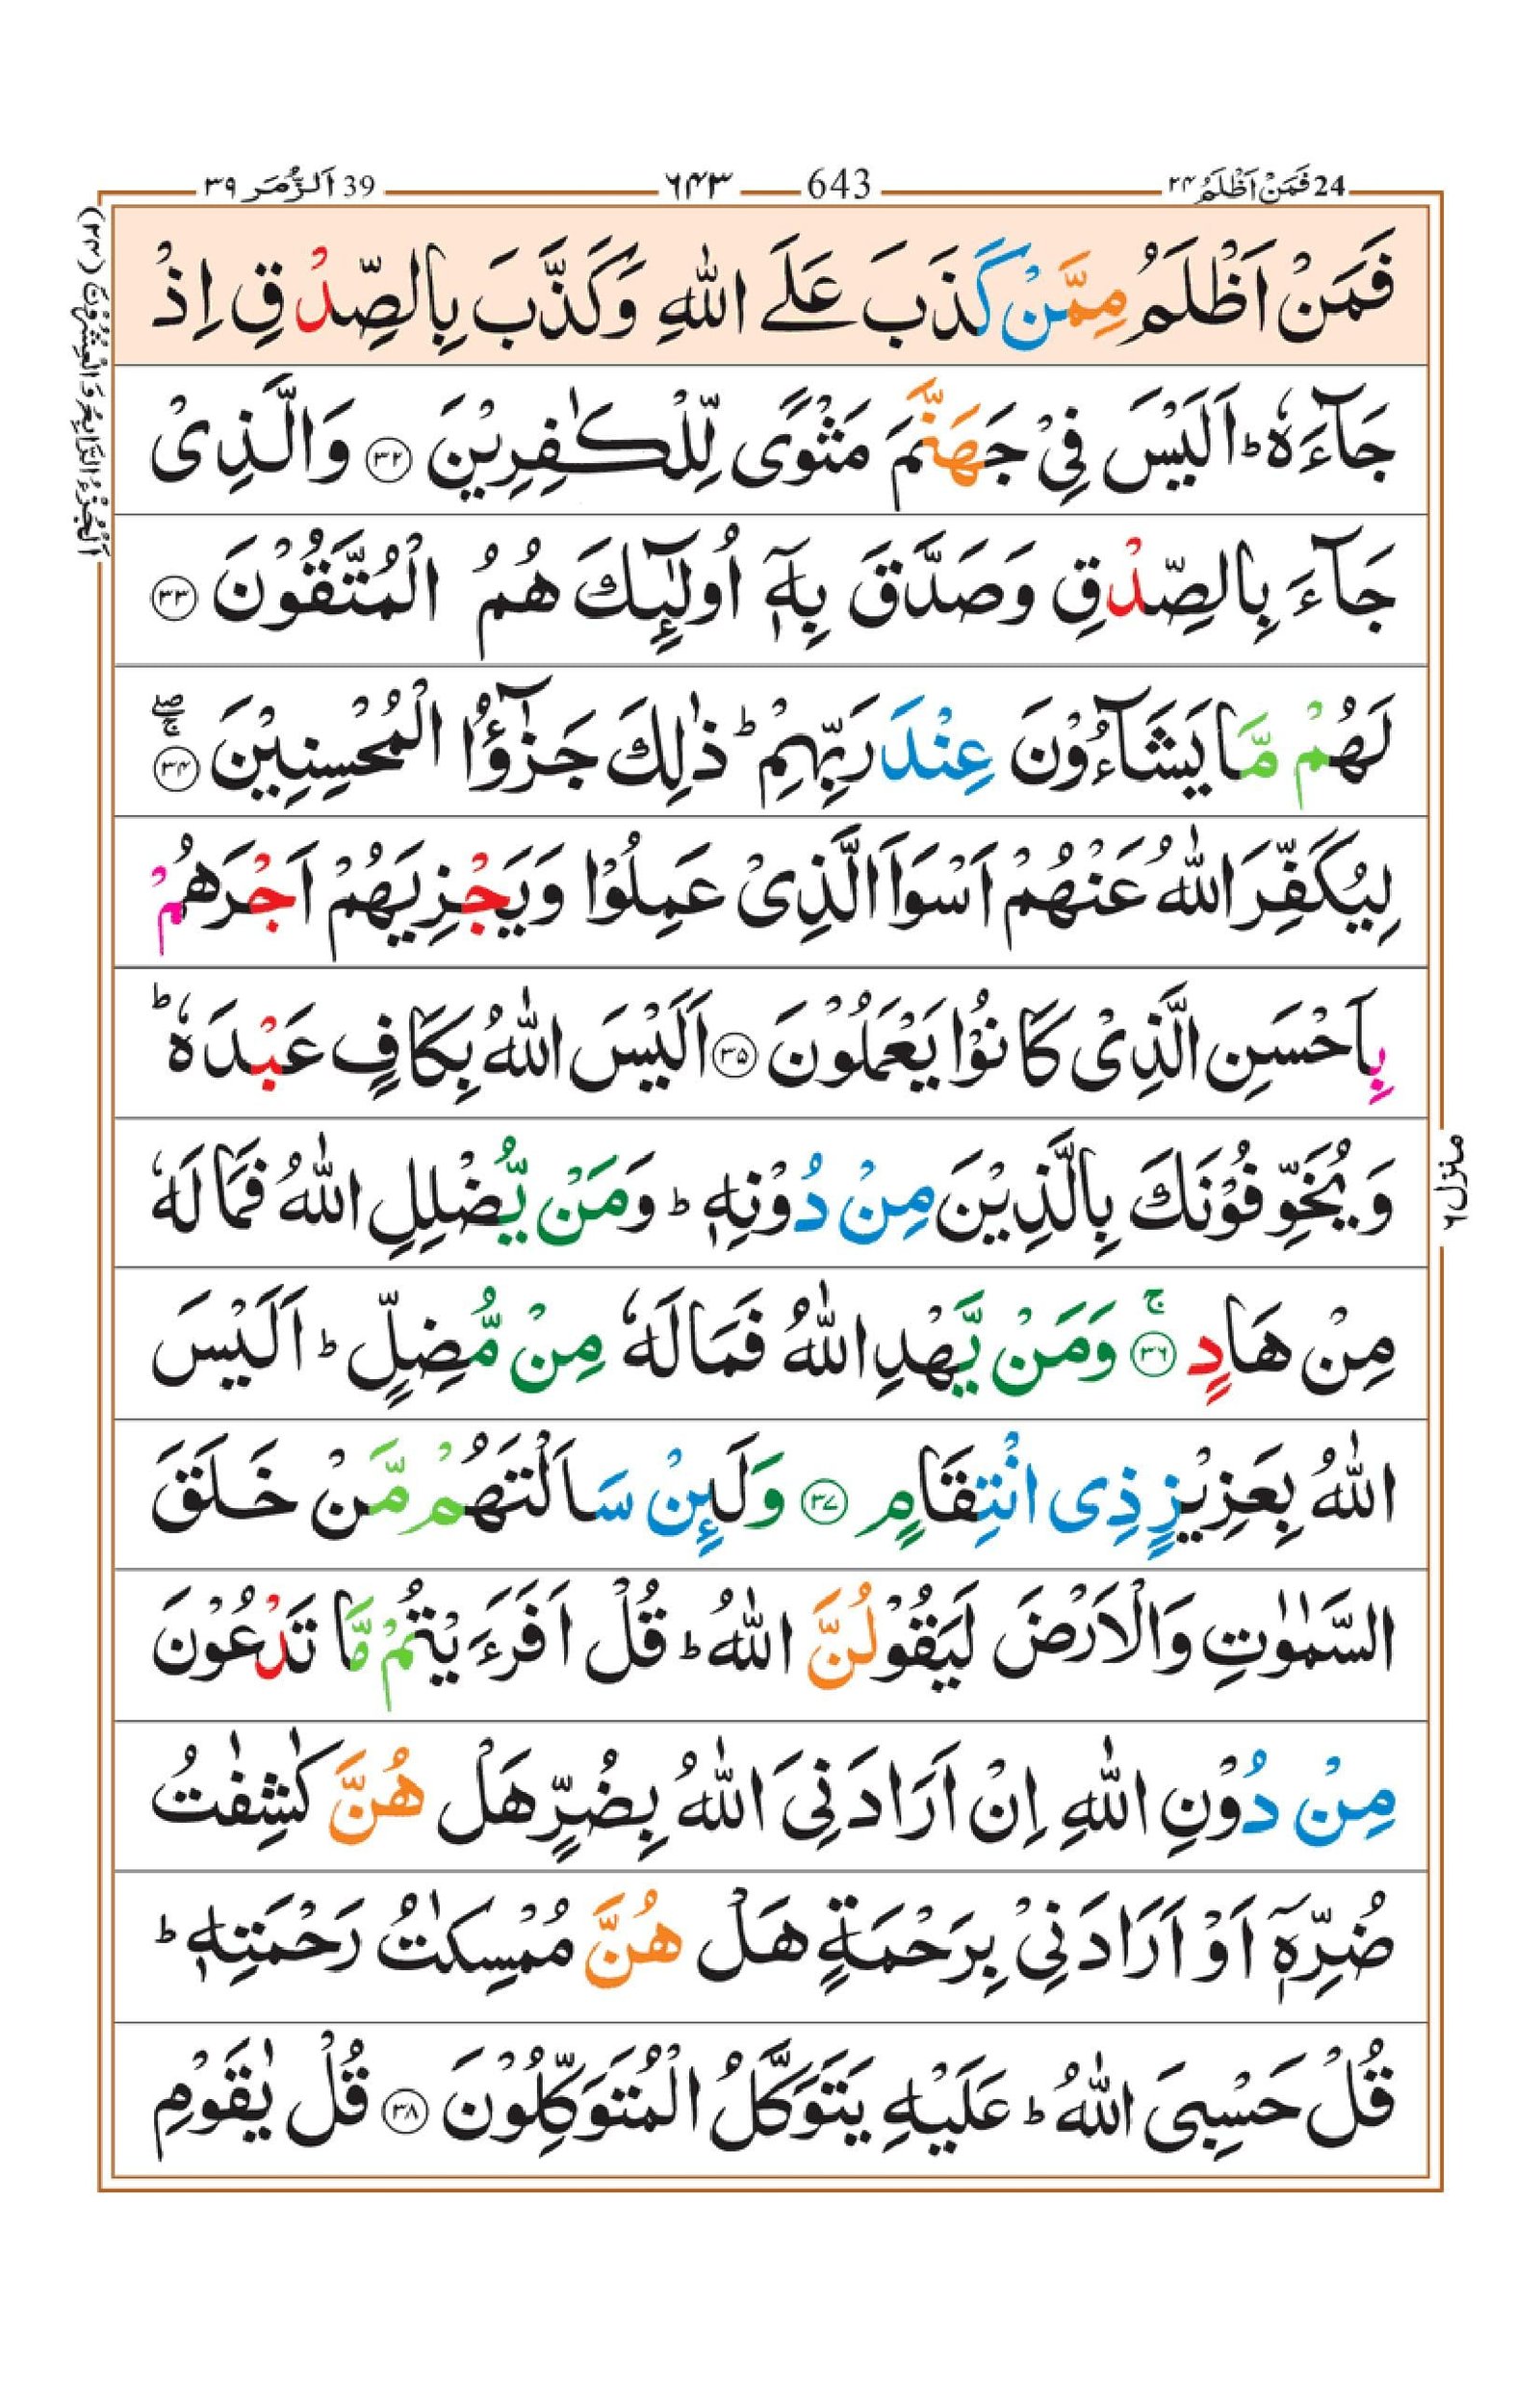 24 فَمَنْ اَظْلَمُ ۲۴
643 ۶۴۳
39 اَلزُّمَر ۳۹
فَمَنْ اَظْلَمُ مِمَّنْ كَذَبَ عَلَے اللّٰهِ وَكَذَّبَ بِالصِّدْقِ اِذْ
جَآءَهٗ ؕ اَلَيْسَ فِىْ جَهَنَّمَ مَثْوًى لِّلْكٰفِرِيْنَ ۳۲ وَالَّذِىْ
جَآءَ بِالصِّدْقِ وَصَدَّقَ بِهٖۤ اُولٰٓئِكَ هُمُ الْمُتَّقُوْنَ ۳۳
لَهُمْ مَّا يَشَآءُوْنَ عِنْدَ رَبِّهِمْ ؕ ذٰلِكَ جَزٰٓؤُا الْمُحْسِنِيْنَ ۳۴ ۚۖ
لِيُكَفِّرَ اللّٰهُ عَنْهُمْ اَسْوَاَ الَّذِىْ عَمِلُوْا وَيَجْزِيَهُمْ اَجْرَهُمْ
بِاَحْسَنِ الَّذِىْ كَانُوْا يَعْمَلُوْنَ ۳۵ اَلَيْسَ اللّٰهُ بِكَافٍ عَبْدَهٗ ؕ
وَيُخَوِّفُوْنَكَ بِالَّذِيْنَ مِنْ دُوْنِهٖ ؕ وَمَنْ يُّضْلِلِ اللّٰهُ فَمَا لَهٗ
مِنْ هَادٍ ۳۶ ۚ وَمَنْ يَّهْدِ اللّٰهُ فَمَا لَهٗ مِنْ مُّضِلٍّ ؕ اَلَيْسَ
اللّٰهُ بِعَزِيْزٍ ذِى انْتِقَامٍ ۳۷ وَلَئِنْ سَاَلْتَهُمْ مَّنْ خَلَقَ
السَّمٰوٰتِ وَالْاَرْضَ لَيَقُوْلُنَّ اللّٰهُ ؕ قُلْ اَفَرَءَيْتُمْ مَّا تَدْعُوْنَ
مِنْ دُوْنِ اللّٰهِ اِنْ اَرَادَنِىَ اللّٰهُ بِضُرٍّ هَلْ هُنَّ كٰشِفٰتُ
ضُرِّهٖۤ اَوْ اَرَادَنِىْ بِرَحْمَةٍ هَلْ هُنَّ مُمْسِكٰتُ رَحْمَتِهٖ ؕ
قُلْ حَسْبِىَ اللّٰهُ ؕ عَلَيْهِ يَتَوَكَّلُ الْمُتَوَكِّلُوْنَ ۳۸ قُلْ يٰقَوْمِ
منزل ۶
اَلْجُزْءُ الرَّابِعُ وَ الْعِشْرُوْنَ (۲۴)